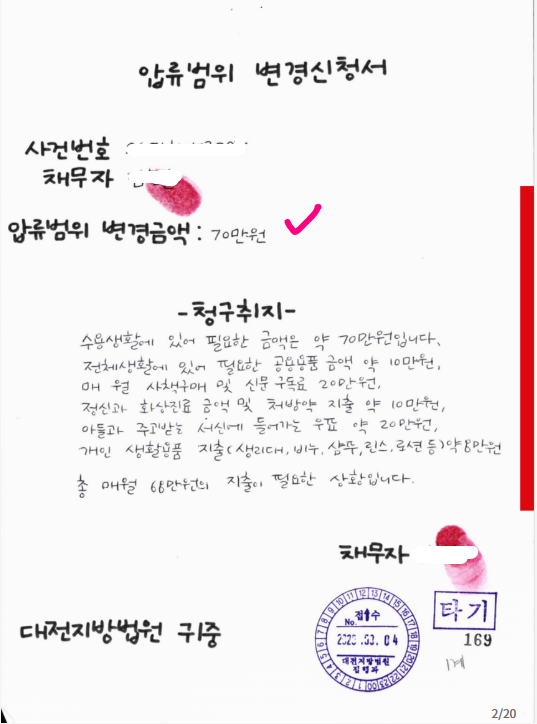 압류범위 변경신청서
사건번호
채무자
압류범위 변경금액 : 70만원
-청구취지-
수용생활에 있어 필요한 금액은 약 70만원입니다.
전체생활에 있어 필요한 공용용품 금액 약 10만원,
매 월 사책구매 및 신문구독료 20만원,
정신과 화상진료 금액 및 처방약 지출 약 10만원,
아들과 주고받는 서신에 들어가는 우표 약 20만원,
개인 생활용품 지출(생리대, 비누, 샴푸, 린스, 로션 등)약 8만원
총 매월 68만원의 지출이 필요한 상황입니다.
채무자
대전지방법원 귀중
접수
No.
2025.03.04
대전지방법원
집행과
타기
169
2/20